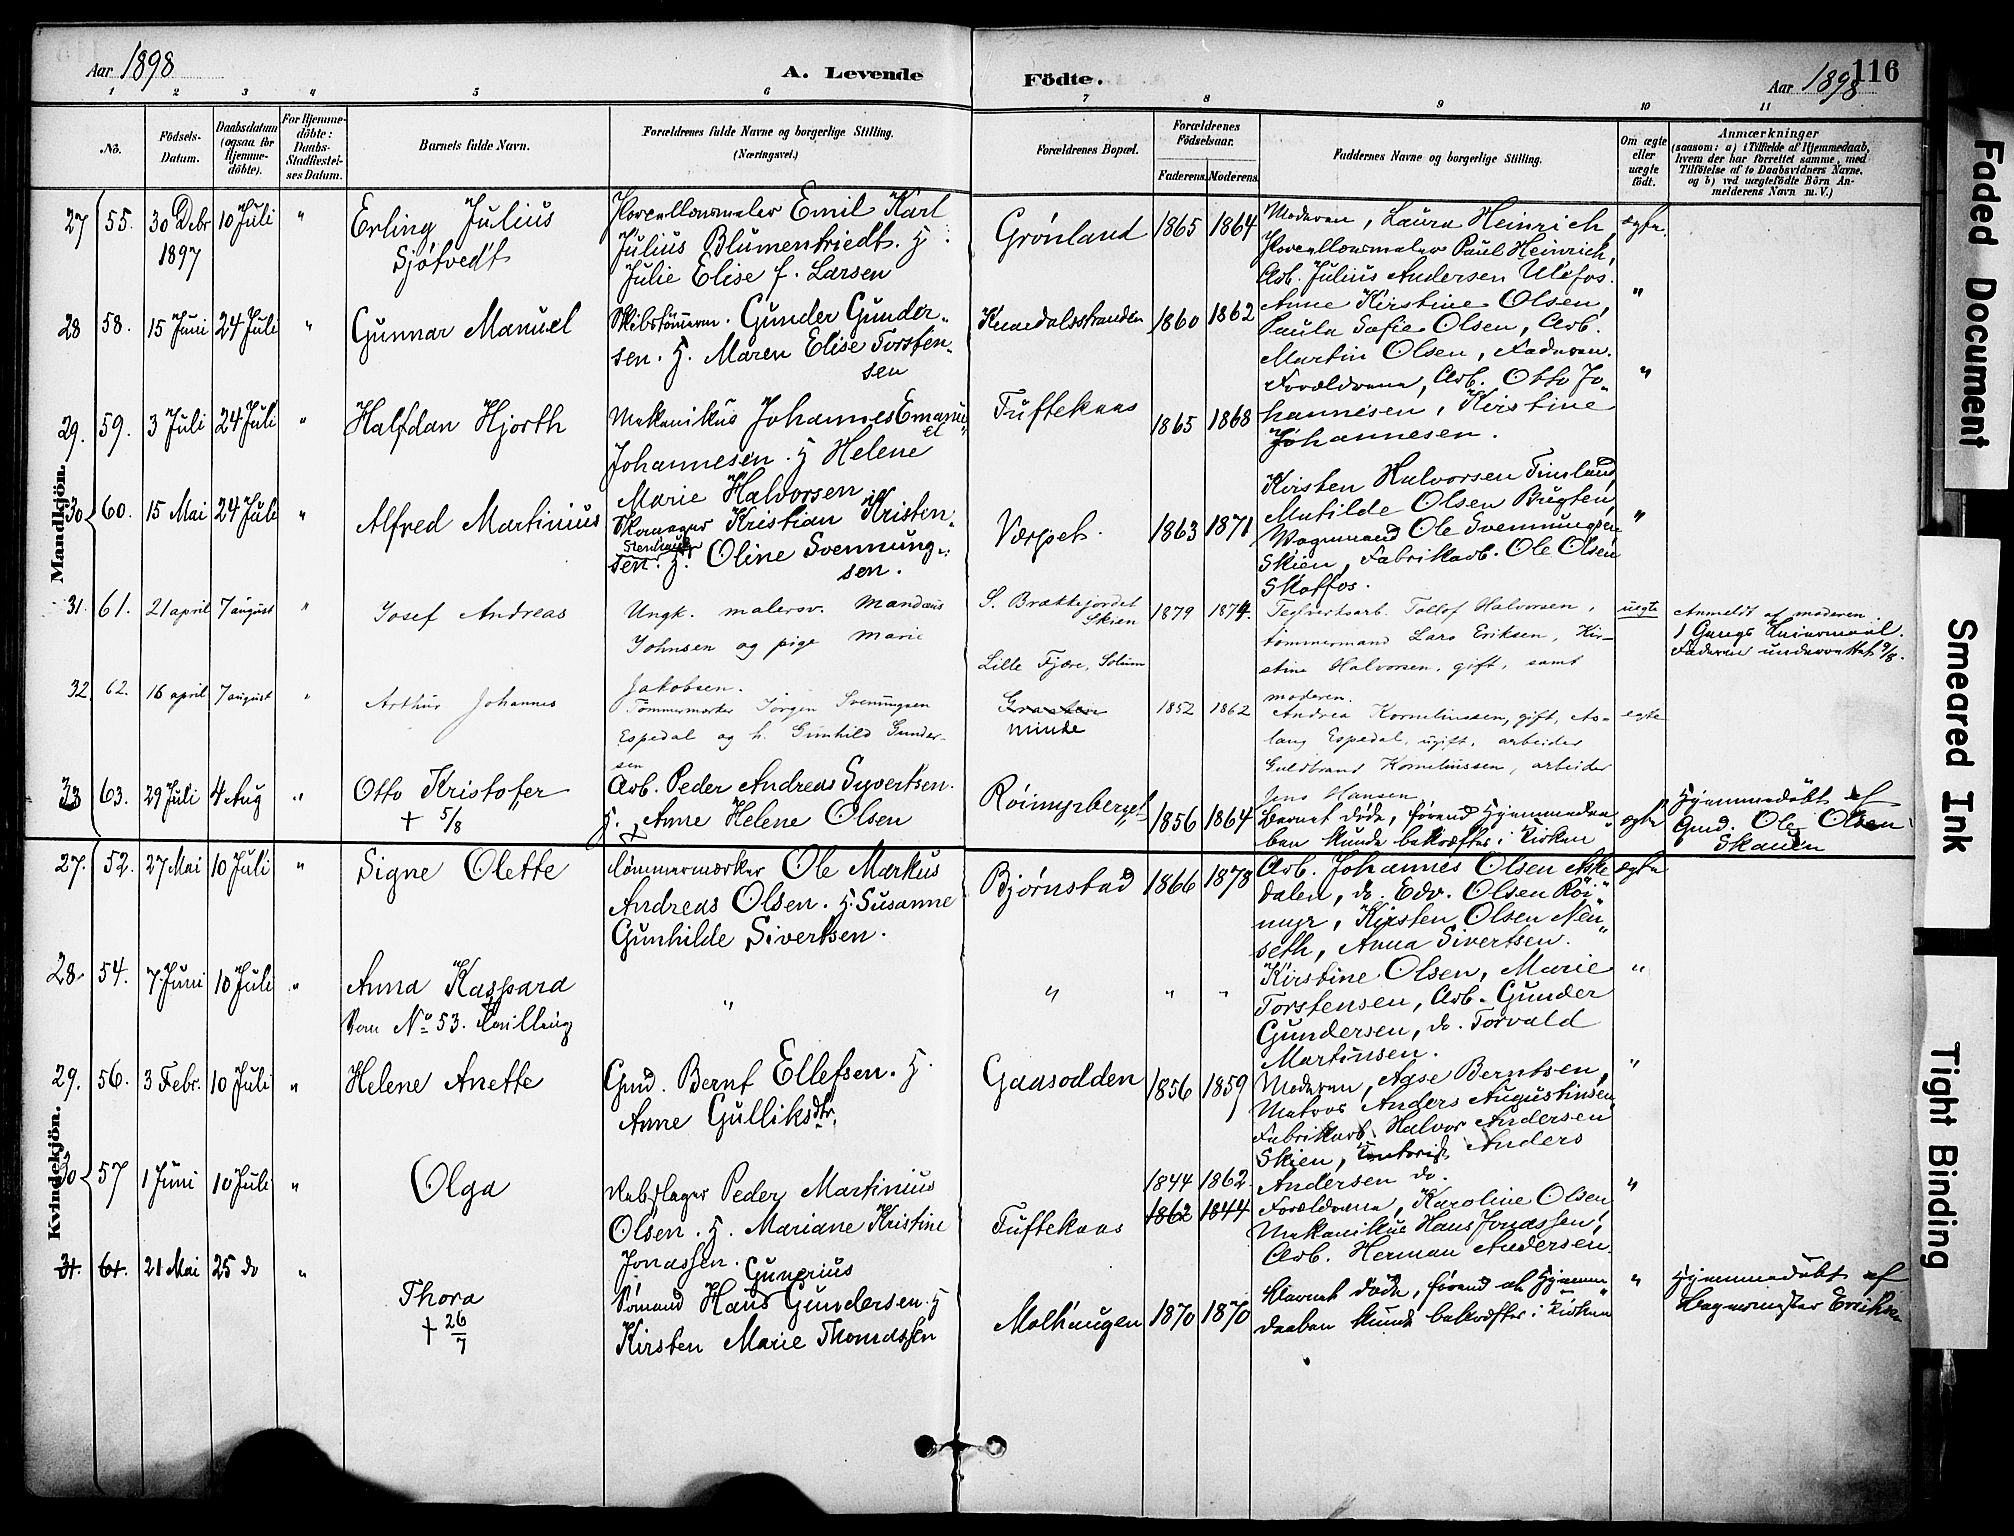 Aar 1898
A. Levende Födte.
Aar 1898
116
1 2 3 4 5 6 7 8 9 10 11
No.
Födsels-Datum.
Daabsdatum (ogsaa for Hjemme-döbte).
For Hjemme-döbte: Daabs-Stadfæstel-ses Datum.
Barnets fulde Navn.
Forældrenes fulde Navne og borgerlige Stilling.
(Næringsvei.)
Forældrenes Bopæl.
Forældrenes Födselsaar.
Faderens. Moderens.
Faddernes Navne og borgerlige Stilling.
Om ægte eller uægte födt.
Anmærkninger
(saasom: a) i Tilfælde af Hjemmedaab, hvem der har forrettet samme, med Tilföielse af to Daabsvidners Navne, og b) ved uægtefödte Börn An-melderens Navn m. V.)
Mandkjön.
27 55. 30 Debr 1897 10 Juli " Erling Julius Sjötvedt
Porcellonsmaler Emil Karl
Julius Blumentriedt. H.
Julie Elise f. Larsen
Grönland 1865 1864
Moderen, Laura Heinrich,
Porcellonsmaler Paul Heinrich,
Arb. Julius Andersen Ulefos.
ægte.
28 58. 15 Juni 24 Juli " Gunnar Manuel
Skibstömmm. Gunder Gunder-
sen. H. Maren Elise Torsten-
sen
Knardalsstranden 1860 1862
Anne Kirstine Olsen,
Paula Sofie Olsen, Arb.
Martin Olsen, Faderen.
"
29. 59. 3 Juli 24 Juli " Halfdan Hjorth
Mekanikus Johannes Emanu-
el
Johannesen. H Helene
Marie Halvorsen
Tuftekaas 1865 1868
Forældrene, Arb. Otto Jo-
hannesen, Kirstine
Johannesen.
"
30 60. 15 Mai 24 Juli " Alfred Martinius
Skomager Kristian Kristen-
sen. H. Oline Svennung-
sen.
Værpet. 1863 1871
Kirsten Halvorsen
Matilde Olsen
Vognmand Ole Svennungsen
Skien, Fabrikarb. Ole Olsen
Skotfos.
"
31. 61. 21 april 7 august " Josef Andreas
Ungk. malersv. Mandæus
Johnsen og pige Marie
Jakobsen.
S. Brættejordet
Skien
Lille Fjære, Solum
1879 1874.
Teglverksarb. Tollof Halvorsen,
tömmermand Lars Eriksen, Kir-
stine Halvorsen, gift, samt
moderen.
uegte
Anmeldt af moderen
1 Gangs Leiermaal.
Faderen underrettet 9/8.
32. 62. 16 april 7 august " Arthur Johannes
Tömmermærker Jörgen Svenningsen
Espedal og h. Gunhild Gunder-
sen
minde
1852 1862
Andrea Korneliussen, gift, As-
laug Espedal, ugift, arbeider
Guldbrand Korneliussen, arbeider
Jens Hansen
egte
33 63. 29 Juli 4 Aug " Otto Kristofer
† 5/8
Arb. Peder Andreas Syvertsen.
H. Anne Helene Olsen
Röimyrberget 1856 1864
Barnet döde, förend Hjemmedaa-
ben kunde bekræftes i Kirken
ægte
Hjemmedöbt af
Gmd. Ole Olsen
Skauen
Kvindekjön.
27. 52. 27 Mai 10 Juli " Signe Olette
Tömmermærker Ole Markus
Andreas Olsen. H. Susanne
Gunhilde Sivertsen.
Bjørnstad 1866 1878
Arb. Johannes Olsen Aske-
dalen, do. Edv. Olsen Röi-
myr, Kirsten Olsen Nen-
seth, Anna Sivertsen.
ægte
28 54. 7 Juni 10 Juli " Anna Kaspara
Vom No 53. Tvilling
" " " "
Kirstine Olsen, Marie
Torstensen, Arb. Gunder
Gundersen, do. Torvald
Martinsen.
"
29. 56. 3 Febr. 10 Juli " Helene Anette
Gmd. Bernt Ellefsen. H.
Anne Gulliksdtr.
Gaasodden 1856 1859
Moderen, Aase Berntsen,
Matros Anders Augustinsen,
Fabrikarb. Halvor Andersen
Skien, Kontorist Anders
Andersen do.
"
30 57 1 Juni 10 Juli " Olga
Rebslager Peder Martinius
Olsen. H. Mariane Kristine
Jonassen.
Tuftekaas
1844 1862.
1862 1844
Forældrene, Karoline Olsen,
Mekanikus Hans Jonassen,
Arb. Herman Andersen.
"
31. 61. 21 Mai 25 do " Thora
† 26/7
Gunerius
Sömand Hans Gundersen. H
Kirsten Marie Thomassen
Molhaugen 1870 1870
Barnet döde, förend at Hjemme-
daaben kunde bekræftes i Kirken
"
Hjemmedöbt af
Eriksen
Faded Document
Smeared Ink
Tight Binding